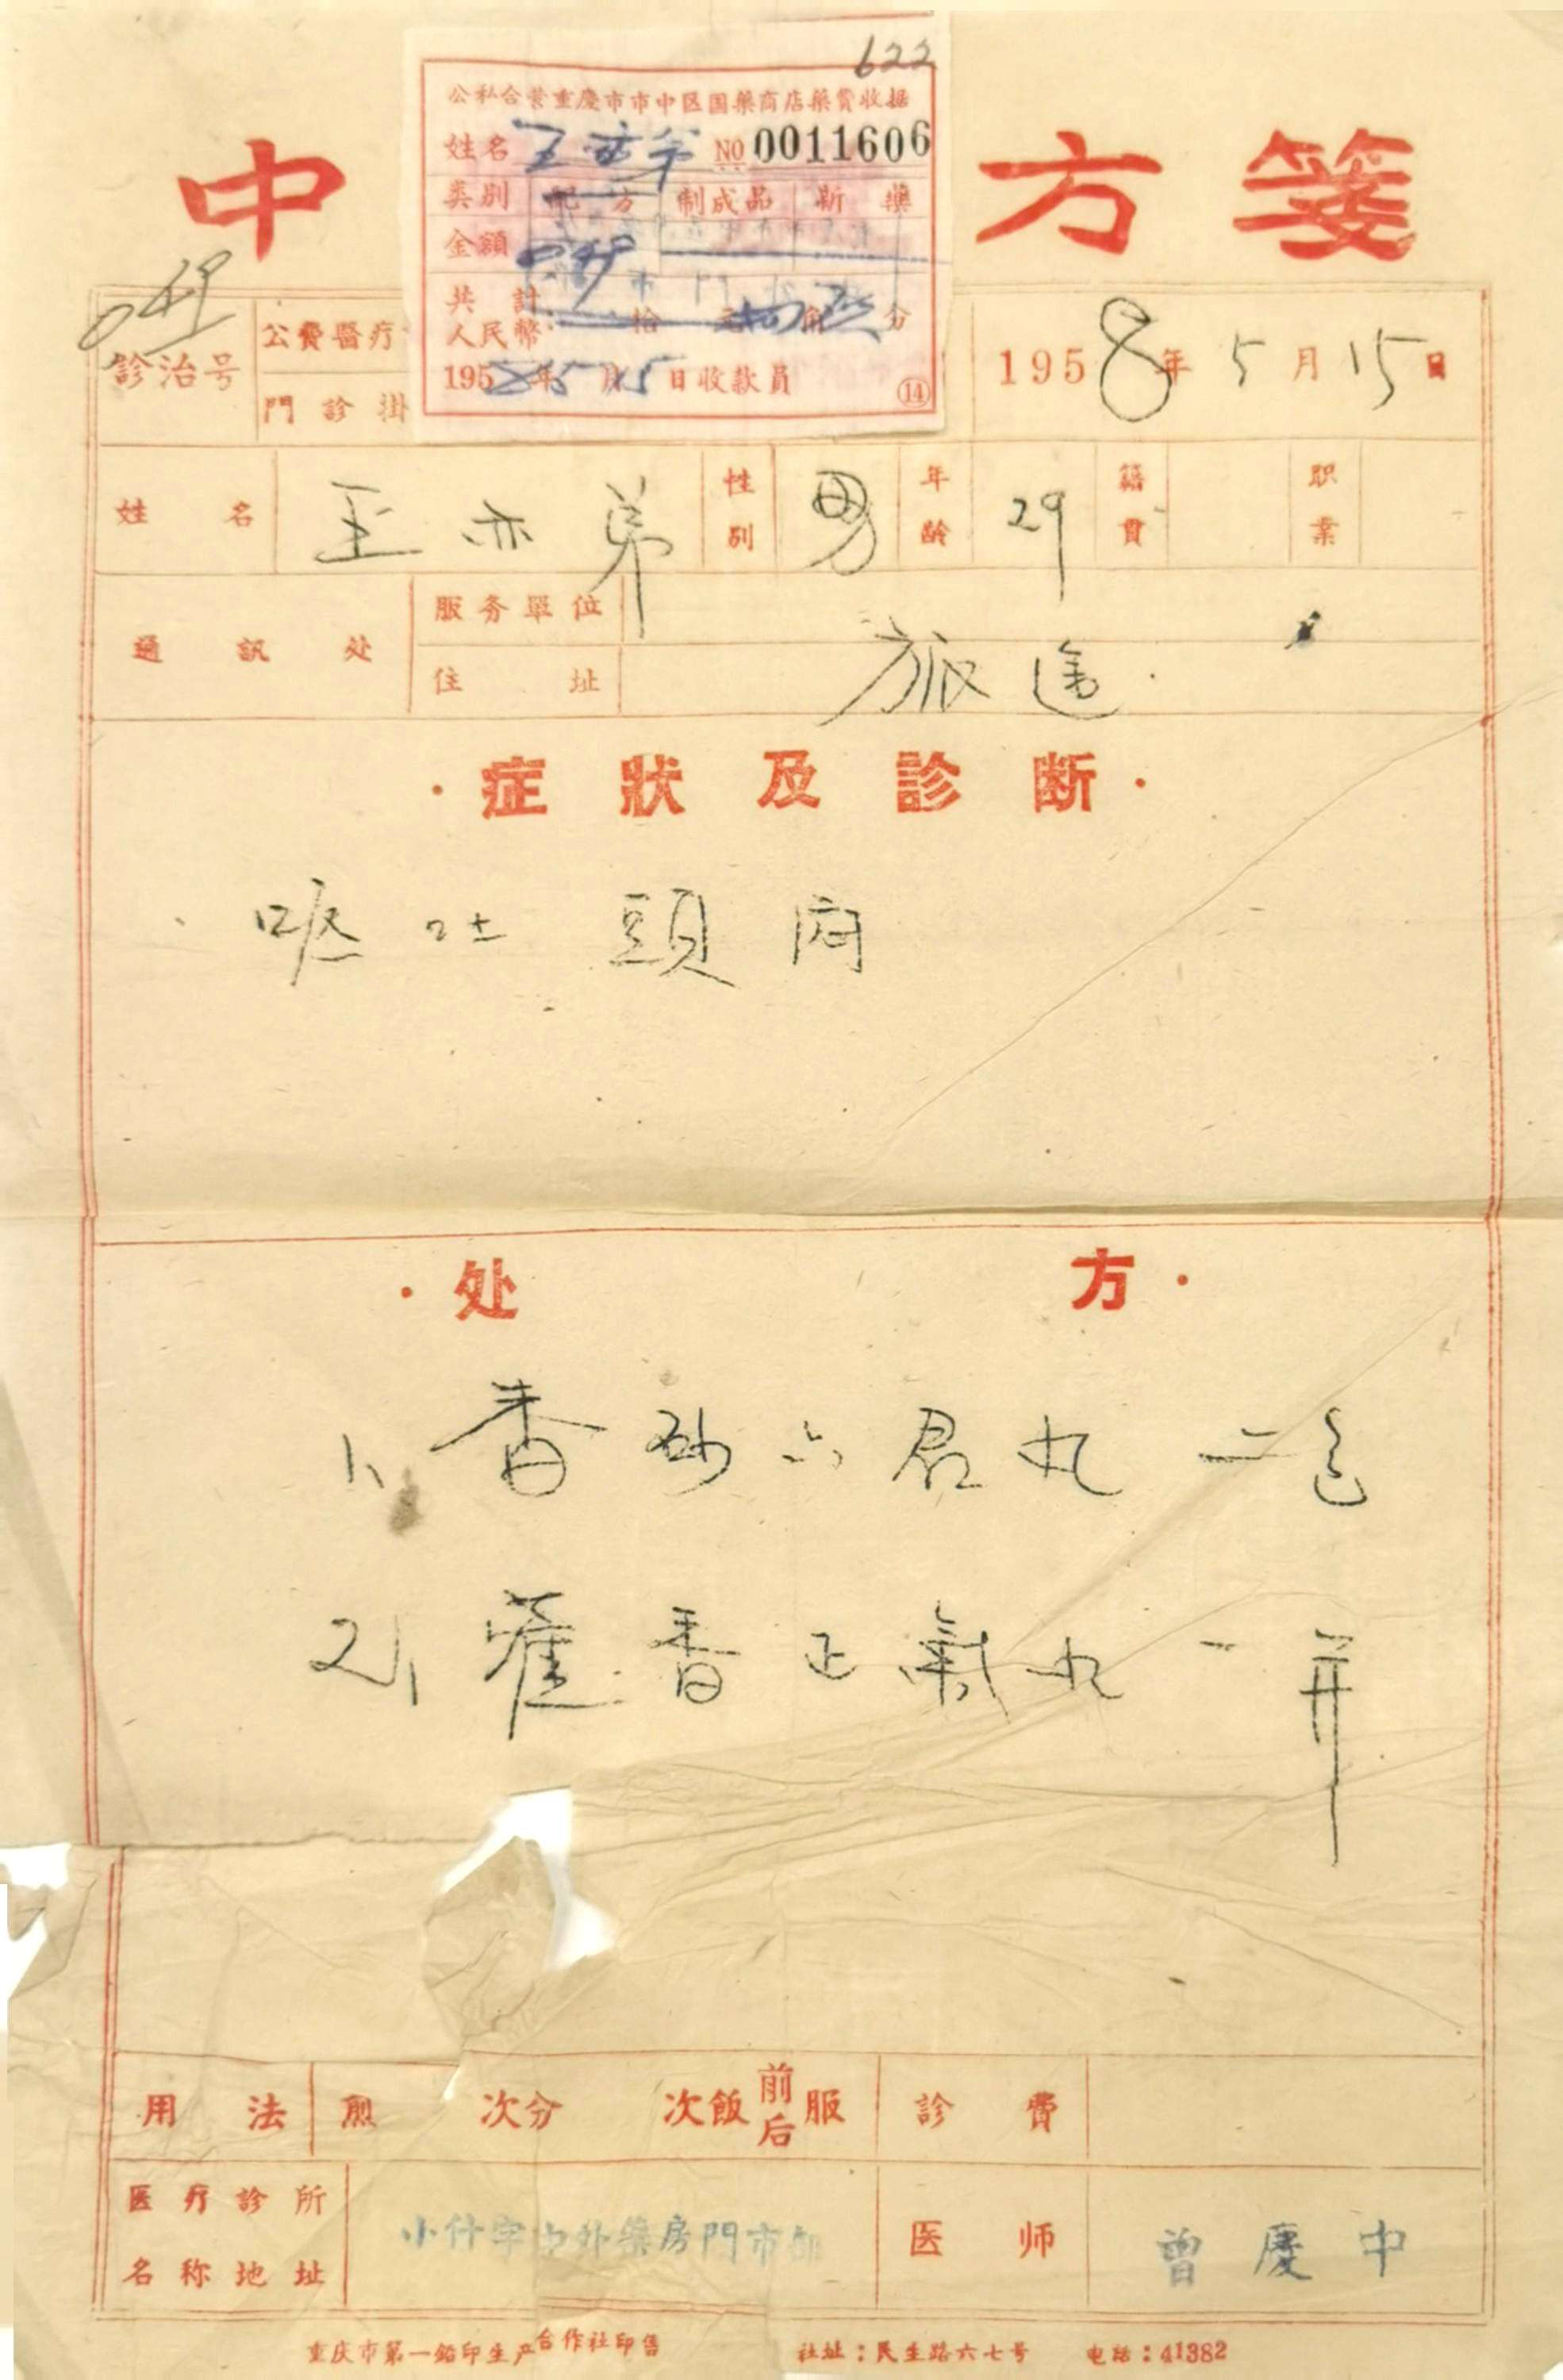 622
公私合营重慶市市中区国藥商店藥費收据
姓名 王亦 NO 0011606
类别 配方 制成品 新藥
金額
共計
人民幣 拾 元 角 分
1958年5月15日收款員 ⑭
中 方箋
診治号 公費醫疗
門診掛
1958年5月15日
姓名 王亦弟 性別 男 年齡 29 籍貫 职業
通訊处 服务單位
住址 旅途
·症狀及診断·
嘔吐 頭
·处方·
1、香砂六君丸 二包
2、藿香正氣丸 一并
用法 煎 次分 次飯前后服 診費
医疗診所名称地址 小什字中外藥房門市部 医师 曾慶中
重庆市第一鉛印生产合作社印售 社址：民生路六七号 电話：41382